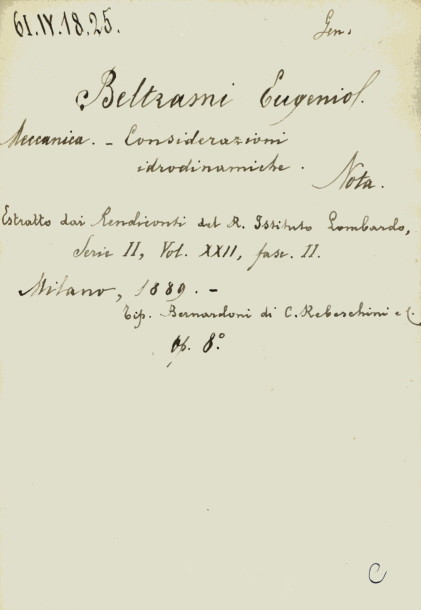 61.IV.18.25.
Gen.
Beltrami Eugenio.
Meccanica. - Considerazioni
idrodinamiche.
Nota.
Estratto dai Rendiconti del R. Istituto Lombardo,
Serie II, Vol. XXII, fasc. II.
Milano, 1889. -
Tip. Bernardoni di C. Rebeschini e C.
op. 8°
C